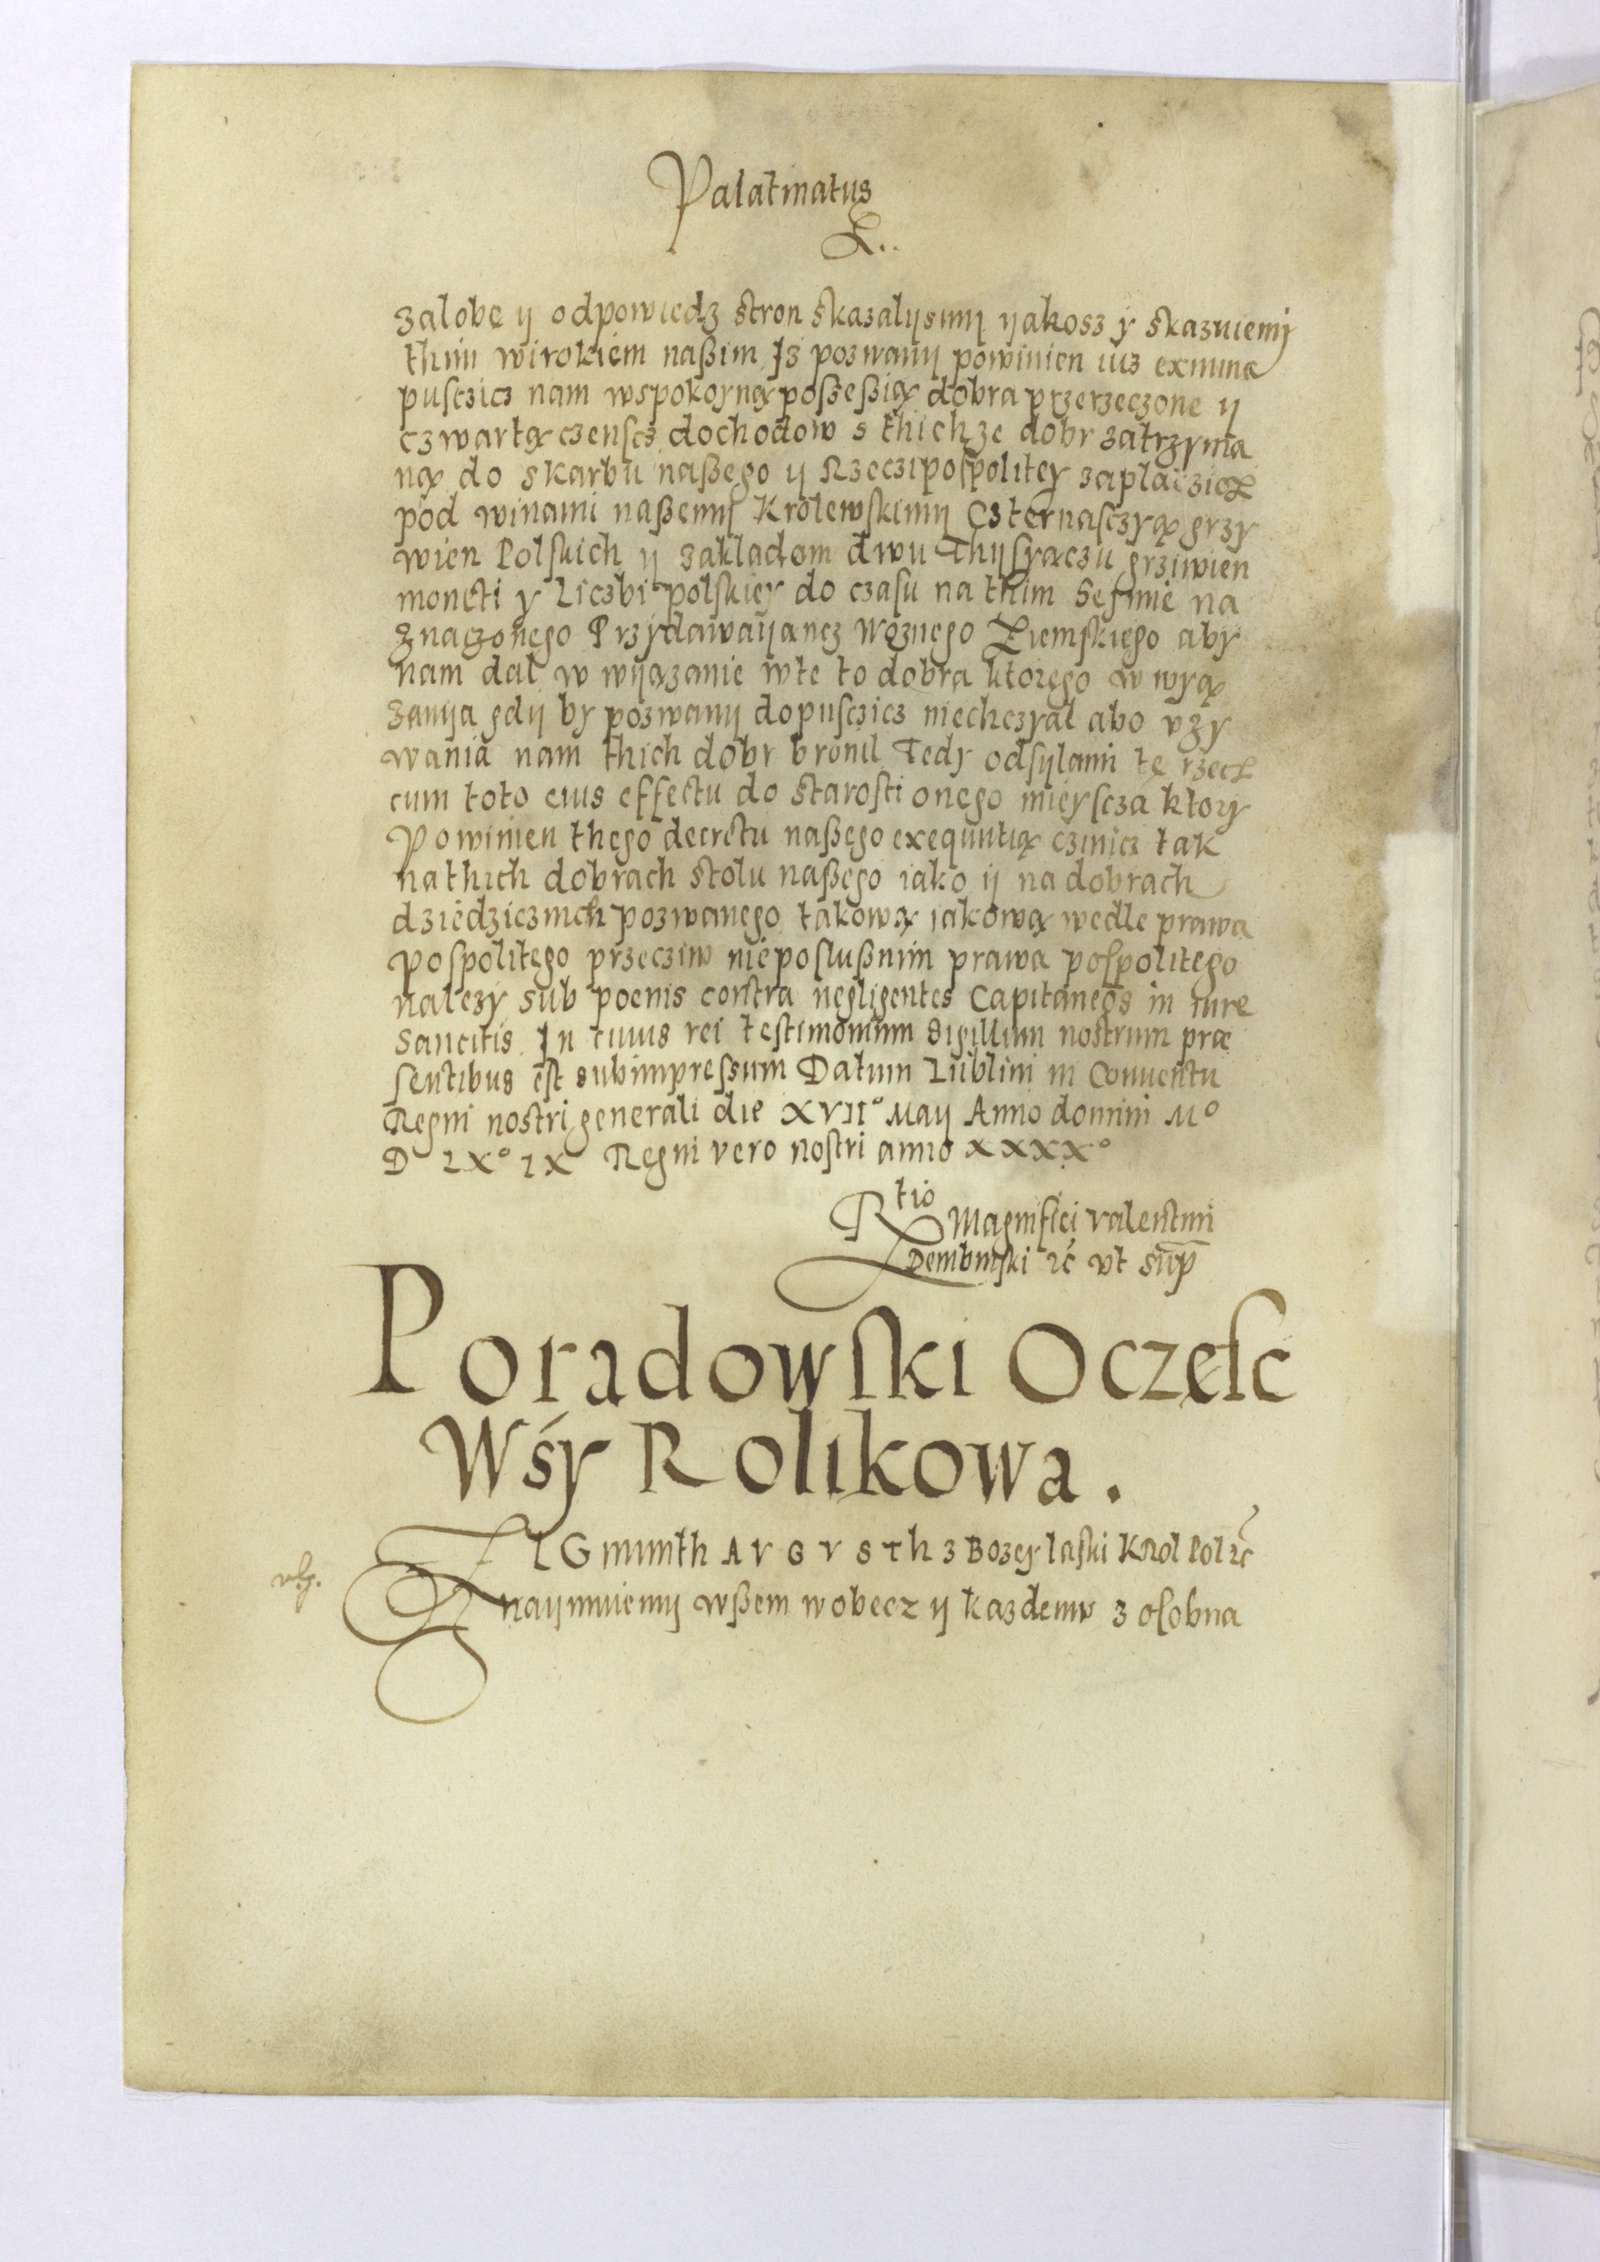 Palatinatus
zalobe ÿ odpowiedz stron skazalÿsmÿ ÿakosz ÿ skazuiemÿ
thim wirokiem naßim Jż pozwanÿ powinien iuż exnunc
pusczicz nam wspokoÿną poßeßią dobra przerzeczone ÿ
czwartą czenscz dochodow s thichze dobr zatrzyma
ną do skarbu naßego ÿ Rzeczipospoliteÿ zaplaczicz
pod winami naßemÿ Krolewskimÿ Czternascząÿ grzy
wien Polskich ÿ zakladem dwu Thÿsyączu grziwien
moneti ÿ Liczbi polskieÿ do czasu na thim Seÿmie na
znaczonego Przÿdawaÿancz woznego Ziemskiego aby
nam dal w wÿązanie wte to dobra ktorego w wyą
zanÿa gdÿ by pozwanÿ dopusczicz niechczyal abo vzy
wania nam thich dobr bronil Tedy odsÿlami tę rzecz
cum toto eius effectu do starosti onego mieÿscza ktory
Powinien thego decretu naßego exequutią czinicz tak
na thich dobrach stolu naßego iako ÿ na dobrach
dziedzicznich pozwanego takową iakową wedle prawa
pospolitego przeciw nieposlußnim prawa pospolitego
należy sub poenis contra negligentes Capitaneos in iure
Sancitis In cuius rei testimonium Sigillum nostrum præ
sentibus est subimpressum Datum Lublini in Conuentu
Regni nostri generali die XVII° Maÿ Anno domini M°
D LX° IX Regni vero nostri anno XXXX°
Rtio Magnifici Valentini
Dembinski ꝛc vt sup
Poradowski Oczesc
Wsy Rolikowa.
ZIGmunth AVGVSTh z Bozey laski Krol Pol ꝛc
Znaÿmuiemÿ wßem wobecz ÿ kazdemu z osobna